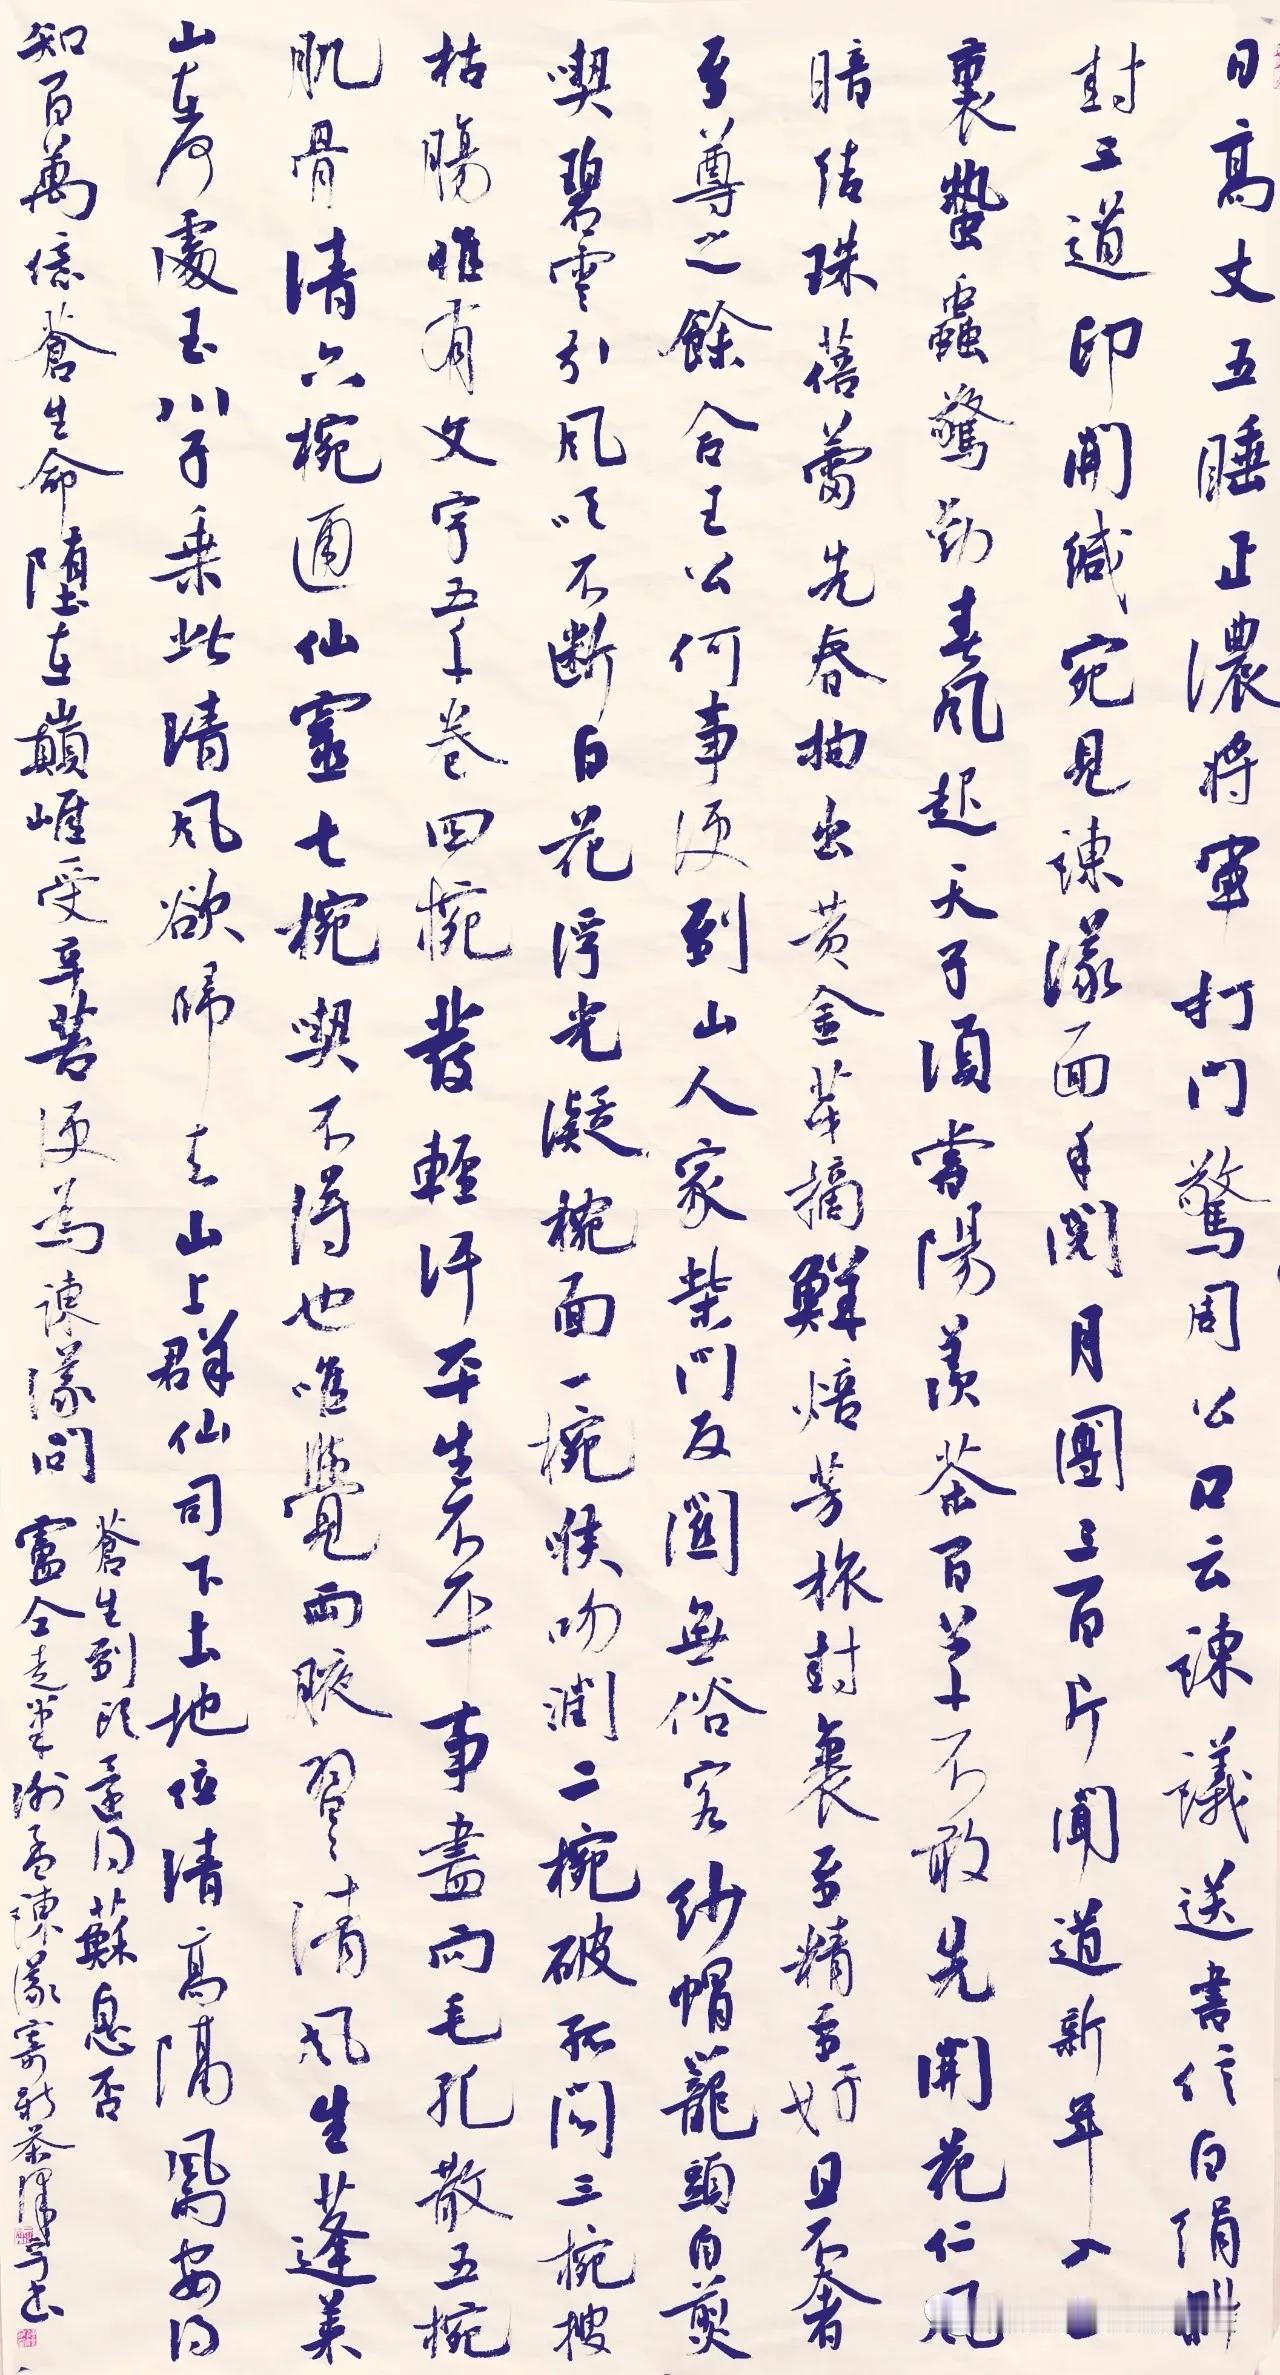 日高丈五睡正濃將軍打門驚周公口云諫議送書信白絹斜
封三道印開緘宛見諫議面手閱月團三百片聞道新年入
裏蟄蟲驚動春風起天子須嘗陽羨茶百草不敢先開花仁風
暗結珠蓓蕾先春抽出黃金芽摘鮮焙芳旋封裹至精至好且不奢
至尊之餘合王公何事便到山人家柴門反關無俗客紗帽籠頭自煎
喫碧雲引風吹不斷白花浮光凝椀面一椀喉吻潤二椀破孤悶三椀搜
枯腸惟有文字五千卷四椀發輕汗平生不平事盡向毛孔散五椀
肌骨清六椀通仙靈七椀喫不得也唯覺兩腋習〻清風生蓬萊
山在何處玉川子乘此清風欲歸去山上群仙司下土地位清高隔風雨安得
知百萬億蒼生命墮在巔崖受辛苦便為諫議問
蒼生到頭還得蘇息否
盧仝走筆謝孟諫議寄新茶